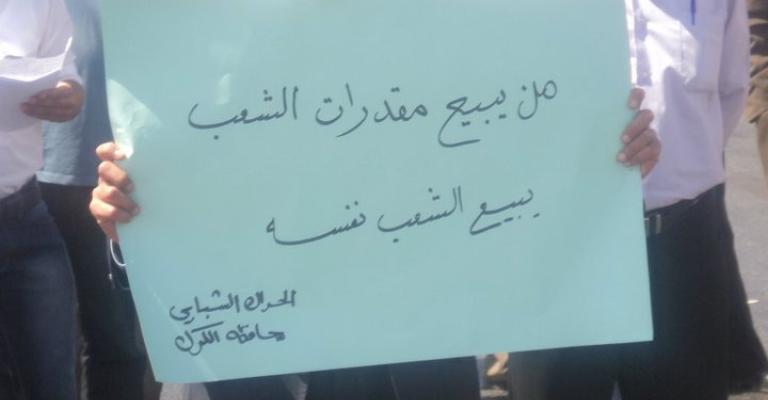 من يبيع مقدرات الشعب
يبيع الشعب نفسه
الحراك الشبابي
محافظة الكرك